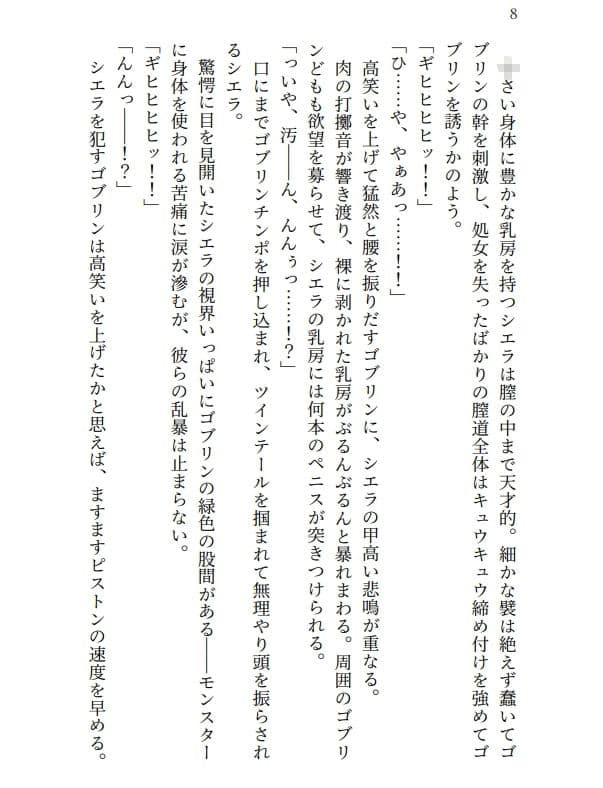 8
さい身体に豊かな乳房を持つシエラは膣の中まで天才的。細かな襞は絶えず蠢いてゴ
ブリンの幹を刺激し、処女を失ったばかりの膣道全体はキュウキュウ締め付けを強めてゴ
ブリンを誘うかのよう。
「ギヒヒヒヒッ！！」
「ひ……や、やぁあっ……！！」
高笑いを上げて猛然と腰を振りだすゴブリンに、シエラの甲高い悲鳴が重なる。
肉の打擲音が響き渡り、裸に剥かれた乳房がぶるんぶるんと暴れまわる。周囲のゴブリ
ンどもも欲望を募らせて、シエラの乳房には何本のペニスが突きつけられる。
「っいや、汚――ん、んんぅっ……！？」
口にまでゴブリンチンポを押し込まれ、ツインテールを掴まれて無理やり頭を振らされ
るシエラ。
驚愕に目を見開いたシエラの視界いっぱいにゴブリンの緑色の股間がある――モンスター
に身体を使われる苦痛に涙が滲むが、彼らの乱暴は止まらない。
「ギヒヒヒヒッ！！」
「んんっ――！？」
シエラを犯すゴブリンは高笑いを上げたかと思えば、ますますピストンの速度を早める。